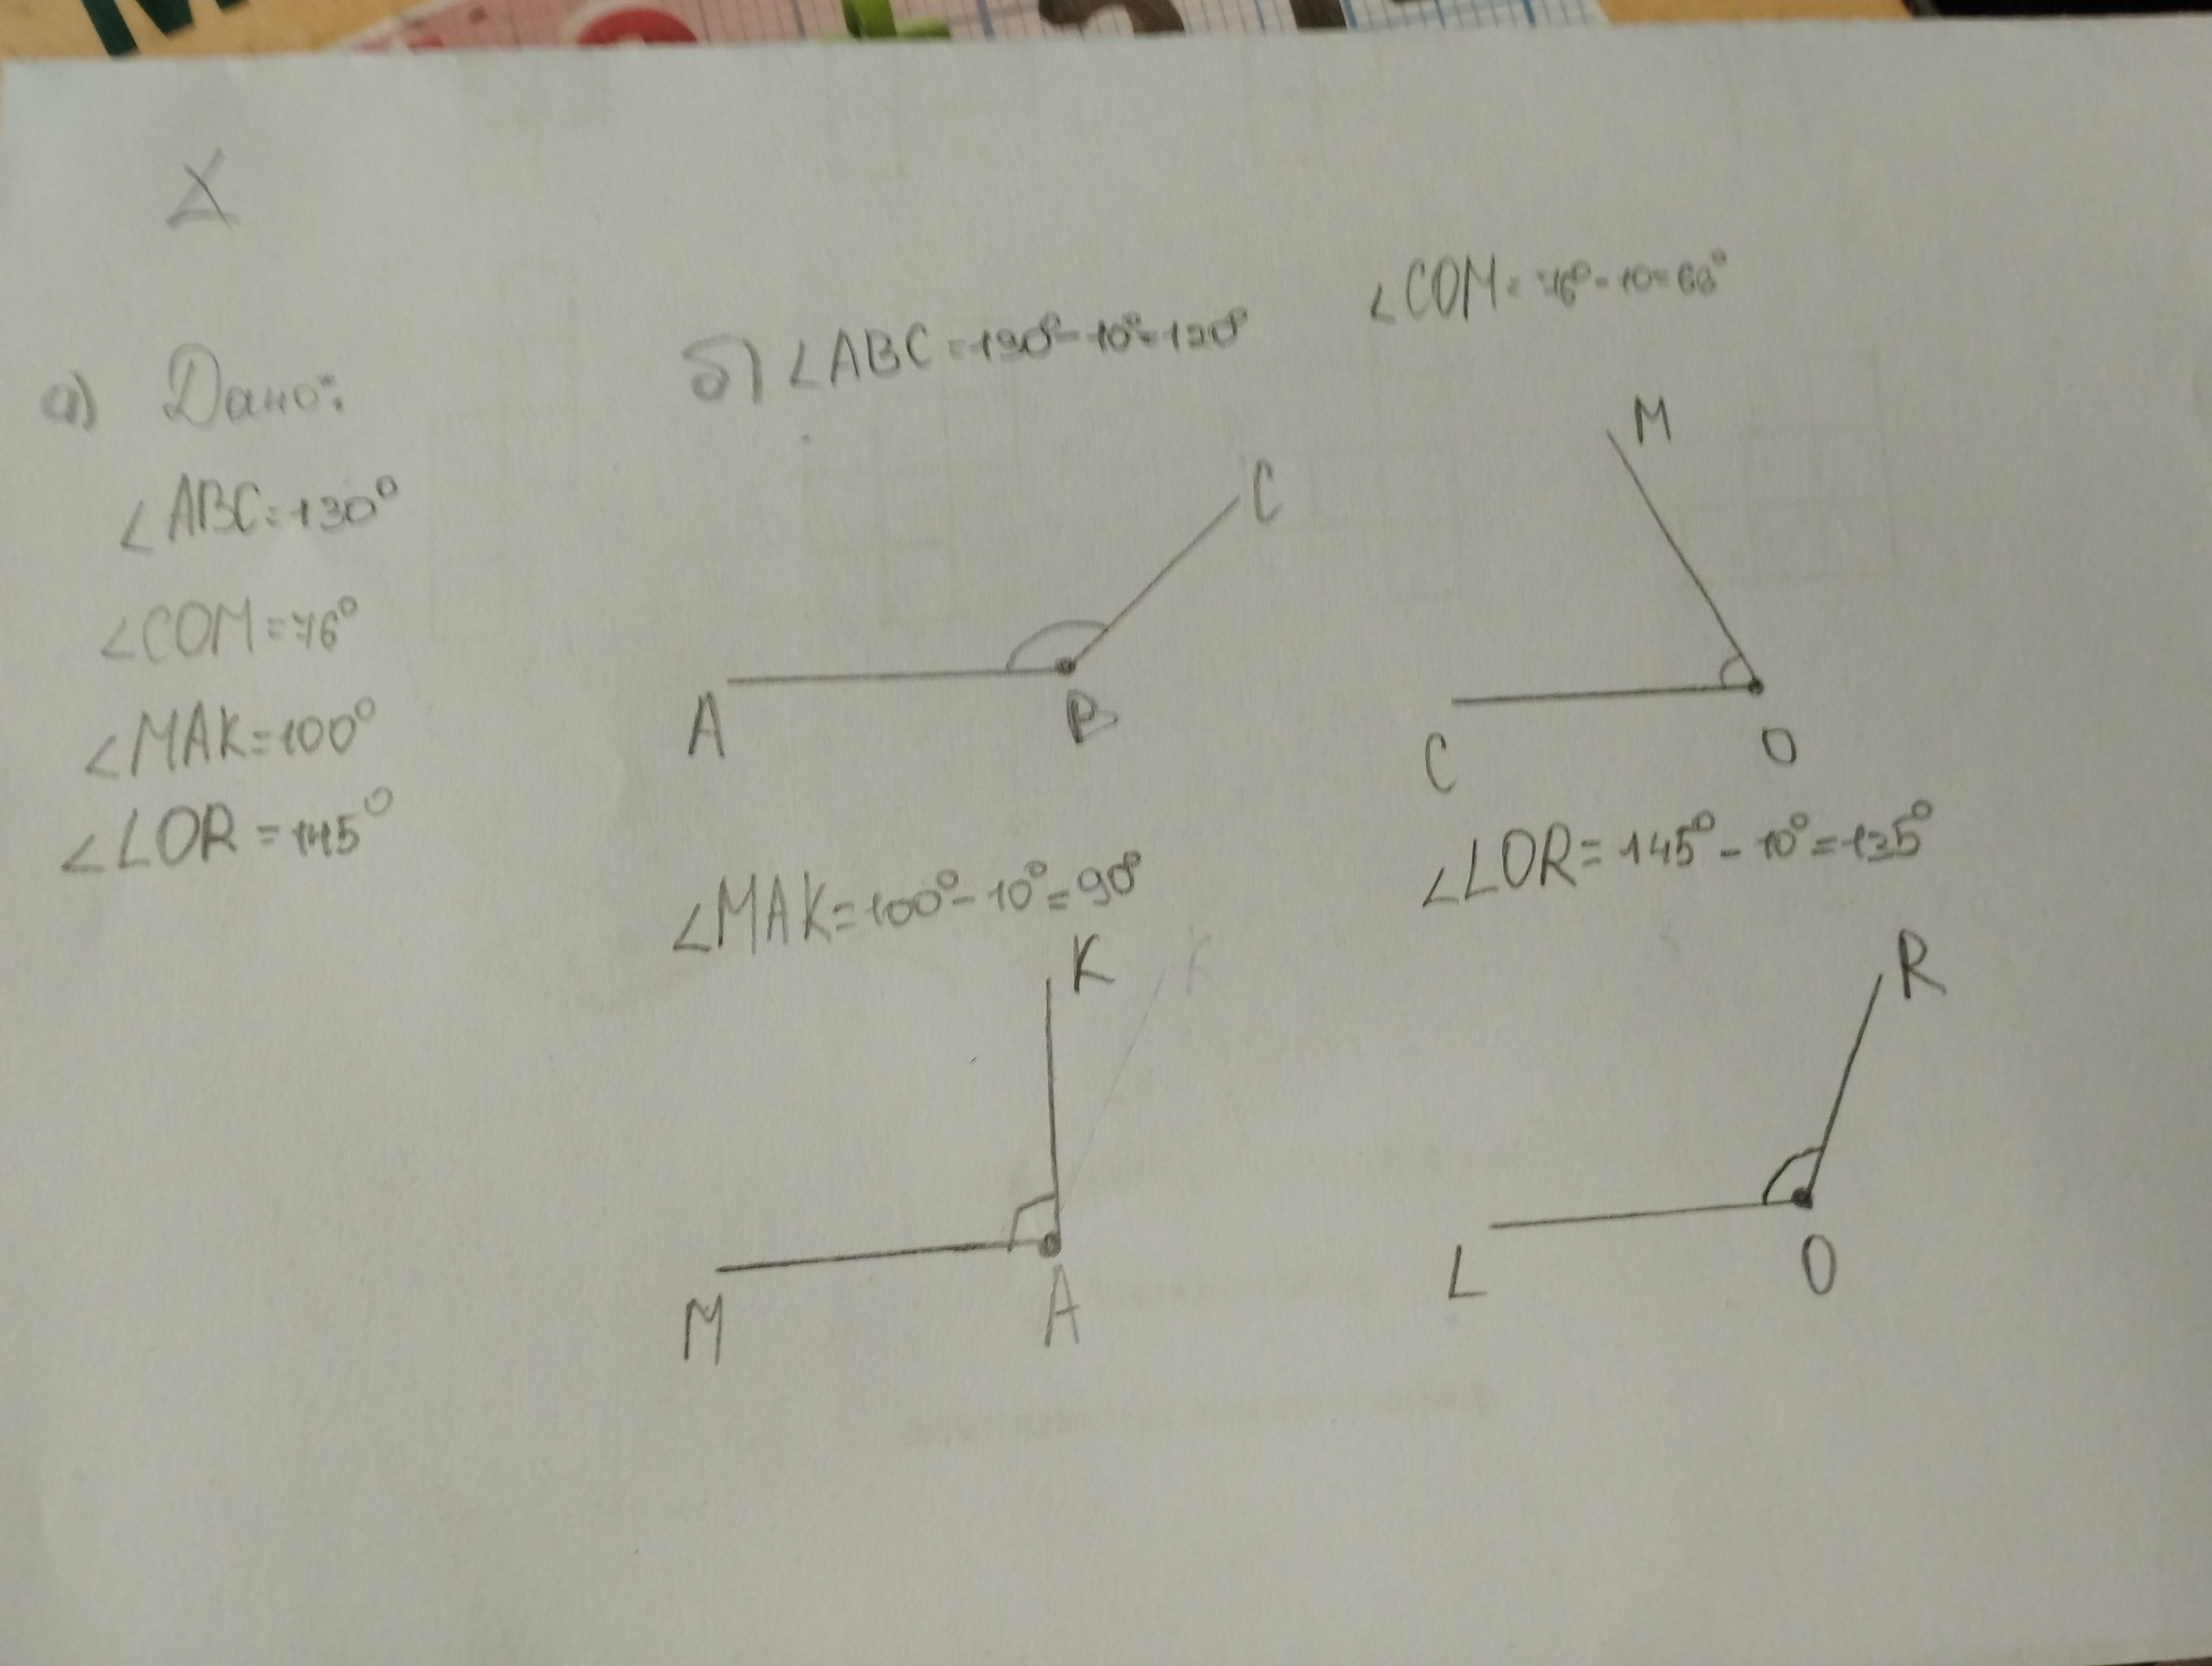 а) Дано:
∠ABC=130°
∠COM=76°
∠MAK=100°
∠LOR=145°
б) ∠ABC=130°-10°=120°
C
A
B
∠COM=76°-10=66°
M
C
O
∠MAK=100°-10°=90°
K
K
M
A
∠LOR=145°-10°=135°
R
L
O